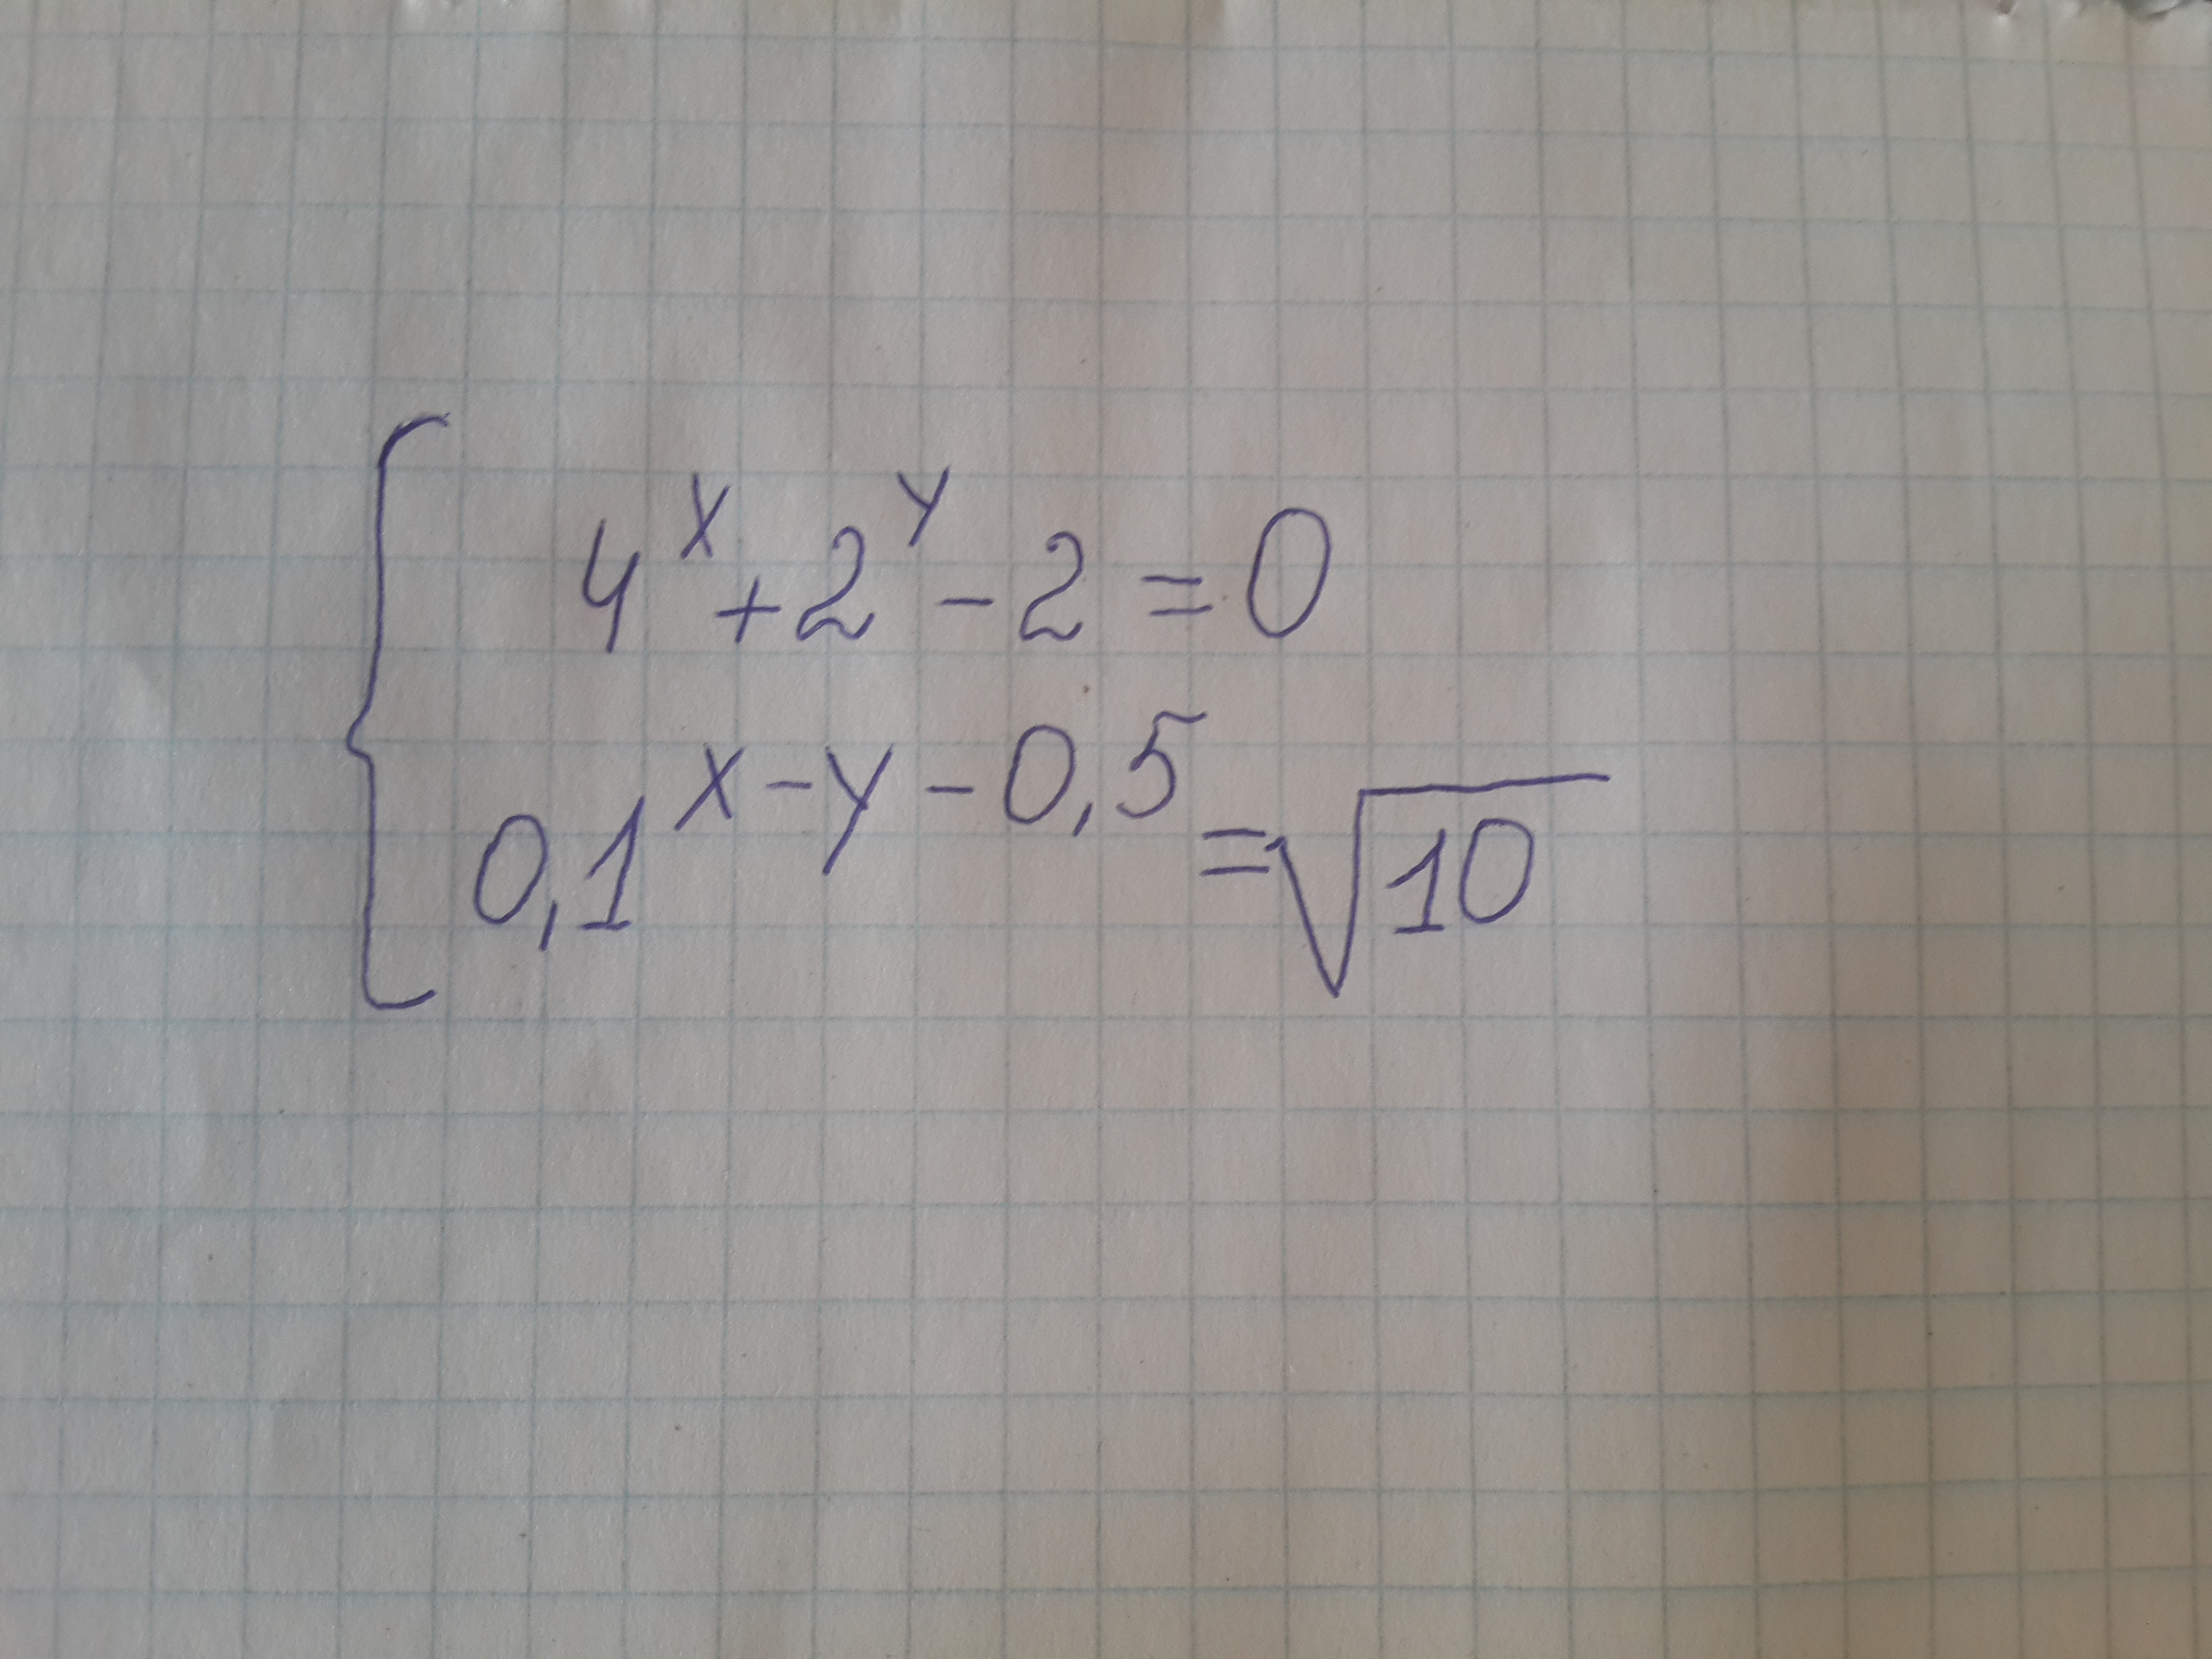 4^x + 2^y - 2 = 0
0,1^{x - y - 0,5} = √10